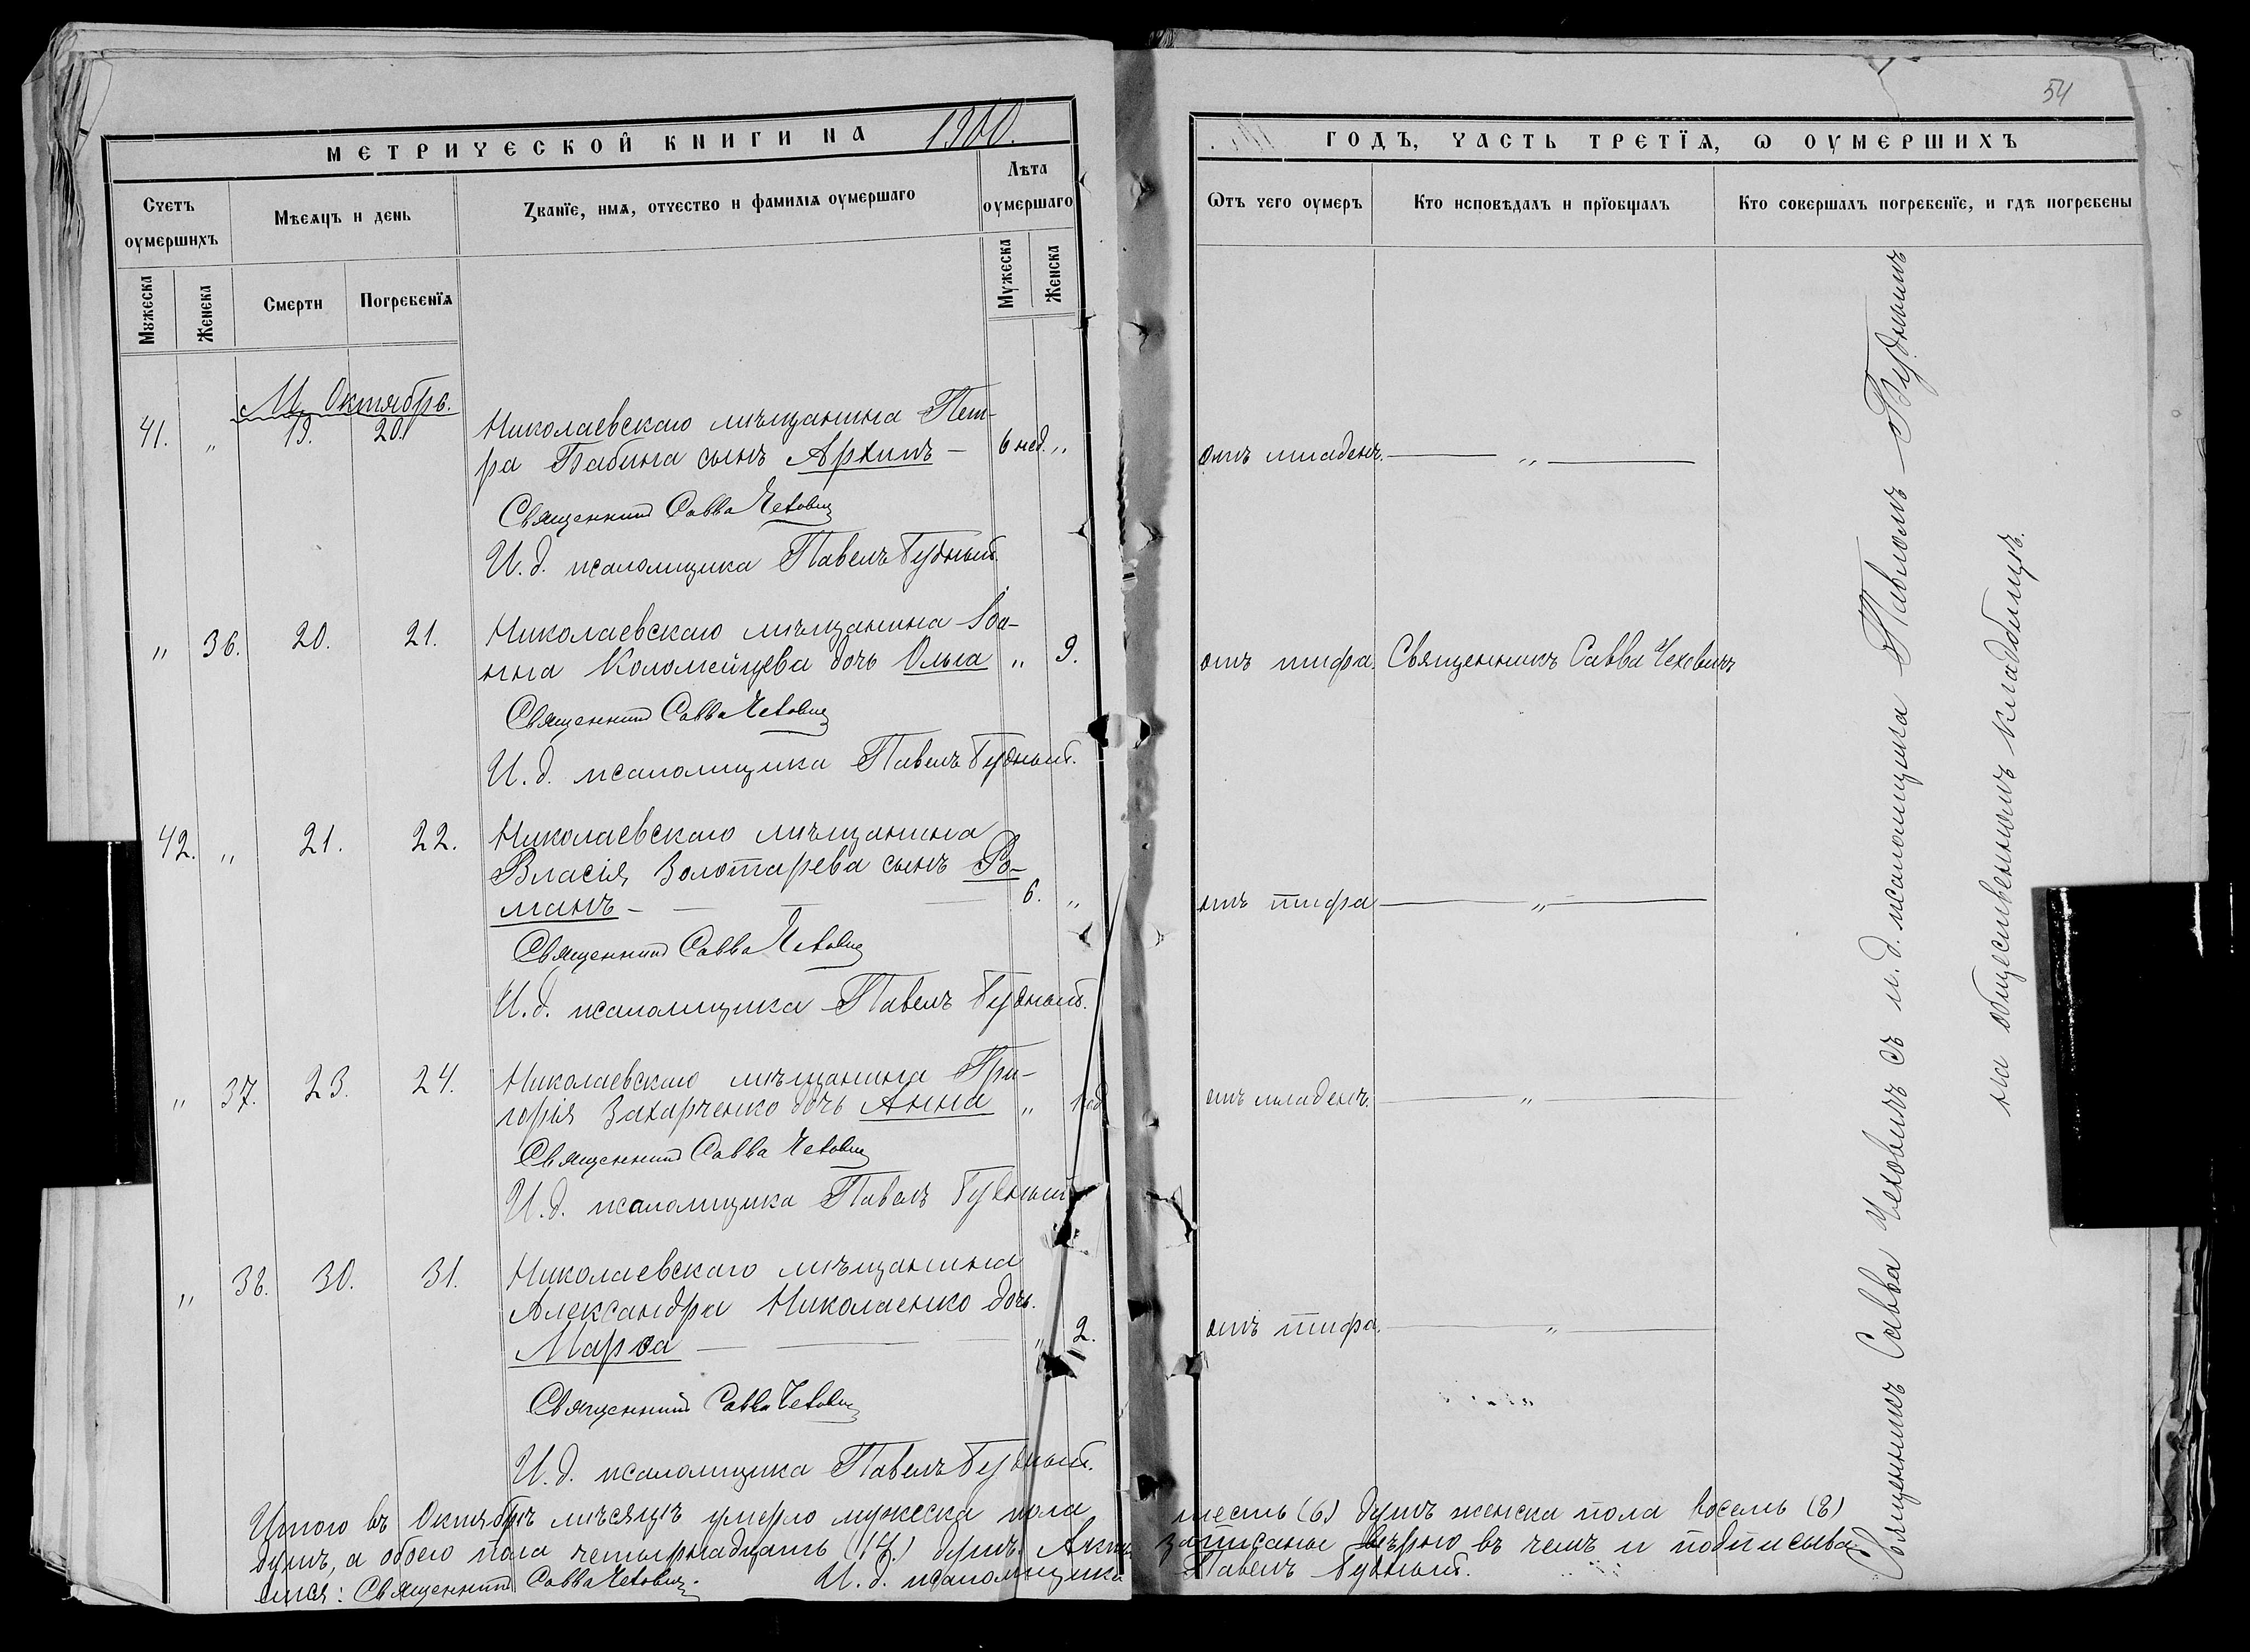 54
МЕТРИЧЕСКОЙ КНИГИ НА 1900.
ГОДЪ, ЧАСТЬ ТРЕТЇѦ, Ѡ ОУМЕРШИХЪ
Счетъ оумершихъ
Мѣсяцъ и день
Званїе, имѧ, отчество и фамилїѧ оумершаго
Лѣта оумершаго
Ѿтъ чего оумеръ
Кто исповѣдалъ и прїобщалъ
Кто совершалъ погребенїе, и гдѣ погребены
Мужеска
Женска
Смерти
Погребенїѧ
Мужеска
Женска
М. Октябрь.
41. „ 19. 20. Николаевскаго мѣщанина Пет-
ра Бабина сынъ Архипъ — 6 нед. „ отъ младенч. — „ —
Священникъ Савва Чеховичъ
И. д. псаломщика Павелъ Будный.
„ 36. 20. 21. Николаевскаго мѣщанина Іоа-
нна Коломейцева дочь Ольга „ 9. отъ тифа. Священникъ Савва Чеховичъ
Священникъ Савва Чеховичъ
И. д. псаломщика Павелъ Будный.
42. „ 21. 22. Николаевскаго мѣщанина
Власія Золотарева сынъ Ро-
манъ — 6. „ отъ тифа — „ —
Священникъ Савва Чеховичъ
И. д. псаломщика Павелъ Будный.
„ 37. 23. 24. Николаевскаго мѣщанина Гри-
горія Захарченко дочь Анна „ 1 год. отъ младенч. — „ —
Священникъ Савва Чеховичъ
И. д. псаломщика Павелъ Будный
„ 38. 30. 31. Николаевскаго мѣщанина
Александра Николаенко дочь
Марѳа — „ 2. отъ тифа. — „ —
Священникъ Савва Чеховичъ
И. д. псаломщика Павелъ Будный.
Священникъ Савва Чеховичъ съ и. д. псаломщика Павломъ Буднымъ
на общественномъ кладбищѣ.
Итого въ Октябрѣ мѣсяцѣ умерло мужеска пола шесть (6) душъ женска пола восемь (8)
душъ, а обоего пола четырнадцать (14.) душъ. Акты записаны вѣрно въ чемъ и подписыва-
емся: Священникъ Савва Чеховичъ. И. д. псаломщика Павелъ Будный.